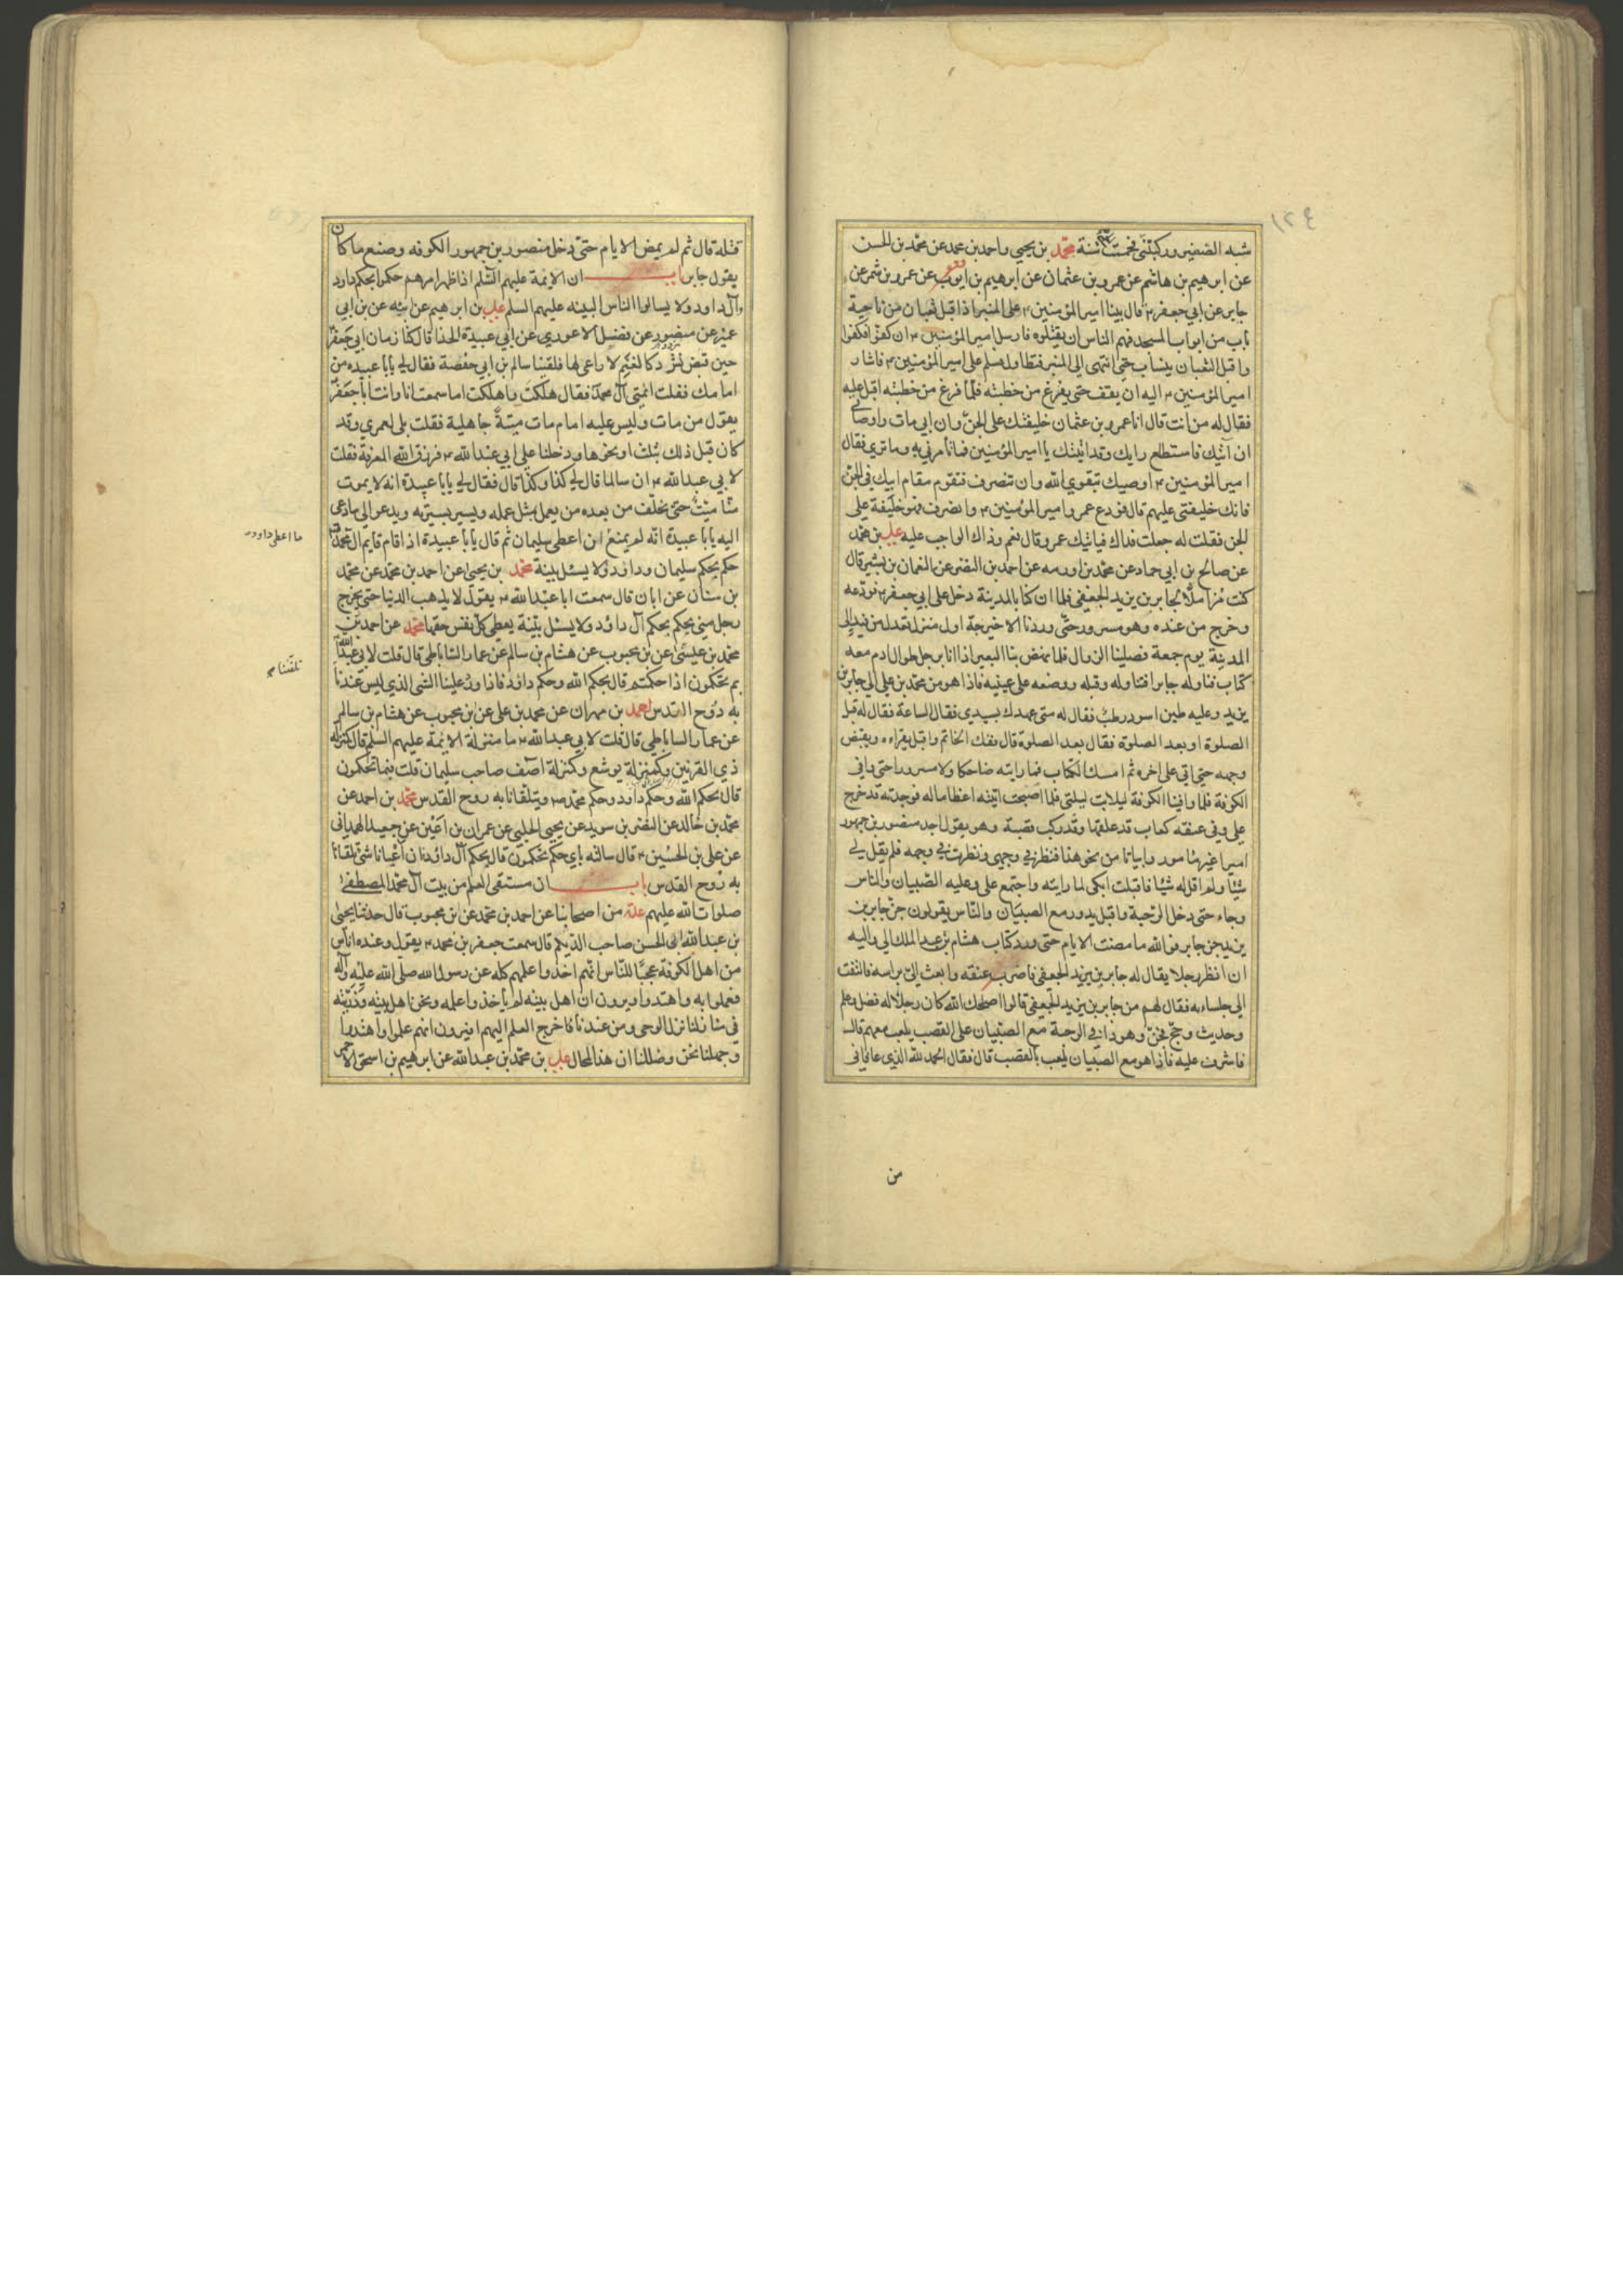 ١٢٤
شبه الضفيرو ركبتنى فخمت سنة محمد بن يحيى واحمد بن محمد عن محمد بن الحسن
عن ابرهيم بن هاشم عن عمرو بن عثمان عن ابرهيم بن ايوب عن عمرو بن شمر عن
جابر عن ابي جعفر ع قال بينا امير المؤمنين ع على المنبر اذا قبل ثعبان من ناحية
باب من ابواب المسجد فهم الناس ان يقتلوه فارسل امير المؤمنين ع ان كفوا فكفوا
واقبل الثعبان ينساب حتى انتهى الى المنبر فتطاول فسلم على امير المؤمنين ع فاشار
امير المؤمنين ع اليه ان يقف حتى يفرغ من خطبته فلما فرغ من خطبته اقبل عليه
فقال له من انت قال انا عمرو بن عثمان خليفتك على الجن وان ابي مات واوصانى
ان آتيك فاستطلع رايك وقد اتيتك يا امير المؤمنين فما تأمرني به وما تري فقال
امير المؤمنين ع اوصيك بتقوي الله وان تنصرف فتقوم مقام ابيك في الجن
فانك خليفتى عليهم قال فودع عمرو امير المؤمنين ع وانصرف فهو خليفة على
الجن فقلت له جعلت فداك فياتيك عمرو قال نعم وذاك الواجب عليه علي بن محمد
عن صالح بن ابي حماد عن محمد بن اورمه عن احمد بن النضر عن النعمان بن بشير قال
كنت مزاملا لجابر بن يزيد الجعفي فلما ان كنا بالمدينة دخل على ابي جعفر ع فودعه
وخرج من عنده وهو مسرور حتى وردنا الاخيرجة اول منزل تعدل من فيد الى
المدينة يوم جمعة فصلينا الزوال فلما نهض بنا البعير اذا انا برجل طوال ادم معه
كتاب فناوله جابرا فتناوله وقبله ووضعه على عينيه فاذا هو من محمد بن علي الى جابر بن
يزيد وعليه طين اسود رطب فقال له متى عهدك بسيدي فقال الساعة فقال له قبل
الصلوة او بعد الصلوة فقال بعد الصلوة قال ففك الخاتم واقبل يقراءه ويقبض
وجهه حتى اتى على اخره ثم امسك الكتاب فما رايته ضاحكا ولا مسرورا حتى وافى
الكوفة فلما وافينا الكوفة ليلا بت ليلتى فلما اصبحت اتيته اعظاما له فوجدته قد خرج
علي وفي عنقه كعاب قد علقها وقد ركب قصبة وهو يقول اجد منصور بن جمهور
اميرا غير مامور وابياتا من نحو هذا فنظر في وجهي ونظرت في وجهه فلم يقل لي
شيئا ولم اقل له شيئا فاقبلت ابكى لما رايته واجتمع على وعليه الصبيان والناس
وجاء حتى دخل الرحبة واقبل يدور مع الصبيان والناس يقولون جن جابر بن
يزيد جن جابر فو الله ما مضت الايام حتى ورد كتاب هشام بن عبد الملك الى واليه
ان انظر رجلا يقال له جابر بن يزيد الجعفي فاضرب عنقه وابعث الي براسه فالتفت
الى جلساءه فقال لهم من جابر بن يزيد الجعفي قالوا اصلحك الله كان رجلا له فضل وعلم
وحديث وحج فجن وهو ذا في الرحبة مع الصبيان على القصب يلعب معهم قال
فاشرف عليه فاذا هو مع الصبيان يلعب بالقصب قال فقال الحمد لله الذي عافانى
من
قتله قال ثم لم يمض الايام حتى دخل منصور بن جمهور الكوفه وصنع ما كان
يقول جابر باب ان الايمة عليهم السلم اذا ظهر امرهم حكموا بحكم داود
وآل داود ولا يسالوا الناس البينه عليهم السلم علي بن ابرهيم عن ابيه عن بن ابي
عمير عن منصور عن فضل الاعوري عن ابي عبيدة الحذا قال كنا زمان ابي جعفر
حين قبض نتردد كالغنم لا راعى لها فلقينا سالم بن ابي حفصة فقال لي يابا عبيده من
امامك فقلت ائمتي آل محمد فقال هلكت واهلكت اما سمعت انا وانت ابا جعفر
يقول من مات وليس عليه امام مات ميتة جاهلية فقلت بلى لعمري وقد
كان قبل ذلك بثلث او نحوها ودخلنا على ابي عبد الله ع فرزق الله المعرفة فقلت
لابي عبد الله ع ان سالما قال لي كذا وكذا قال فقال لي يابا عبيدة انه لا يموت
منا ميت حتى يخلف من بعده من يعمل بمثل عمله ويسير بسيرته ويدعو الى ما دعى
اليه يابا عبيدة انه لم يمنع ان اعطى سليمان ثم قال يابا عبيدة اذا قام قايم آل محمد
ما اعطى داود
حكم بحكم سليمان وداود ولا يسئل بينة محمد بن يحيى عن احمد بن محمد عن محمد
بن سنان عن ابان قال سمعت ابا عبد الله ع يقول لا يذهب الدنيا حتى يخرج
رجل مني يحكم بحكم آل داؤد ولا يسئل بينة يعطى كل نفس حقها محمد عن احمد بن
محمد بن عيسى عن بن محبوب عن هشام بن سالم عن عمار الساباطى قال قلت لابي عبد الله
بم تحكمون اذا حكمتم قال بحكم الله وحكم داود فاذا ورد علينا الشى الذي ليس عندنا
تلقنا به
به روح القدس احمد بن مهران عن محمد بن على عن بن محبوب عن هشام بن سالم
عن عمار الساباطي قال قلت لابي عبد الله ع ما منزلة الايمة عليهم السلم قال كمنزلة
ذي القرنين وكمنزلة يوشع وكمنزلة اصف صاحب سليمان قلت فبما تحكمون
قال بحكم الله وحكم داود وحكم محمد ص ويتلقانا به روح القدس محمد بن احمد عن
محمد بن خالد عن النضر بن سويد عن يحيى الحلبي عن عمران بن اعين عن جعيد الهمدانى
عن على بن الحسين ع قال سالته باي حكم تحكمون قال بحكم آل داؤد فان أعيانا شئ تلقانا
به روح القدس باب ان مستقى العلم من بيت آل محمد المصطفى
صلوات الله عليهم عدة من اصحابنا عن احمد بن محمد عن ابن محبوب قال حدثنا يحيى
بن عبد الله ابى الحسن صاحب الديلم قال سمعت جعفر بن محمد ع يقول وعنده اناس
من اهل الكوفة عجبا للناس انهم اخذوا علمهم كله عن رسول الله صلى الله عليه وآله
فعملوا به واهتدوا ويرون ان اهل بيته لم يأخذوا علمه ونحن اهل بيته وذريته
في منازلنا نزل الوحى ومن عندنا خرج العلم اليهم افيرون انهم علموا واهتدوا
وجهلنا نحن وضللنا ان هذا لمحال علي بن محمد بن عبد الله عن ابرهيم بن اسحق الاحمر